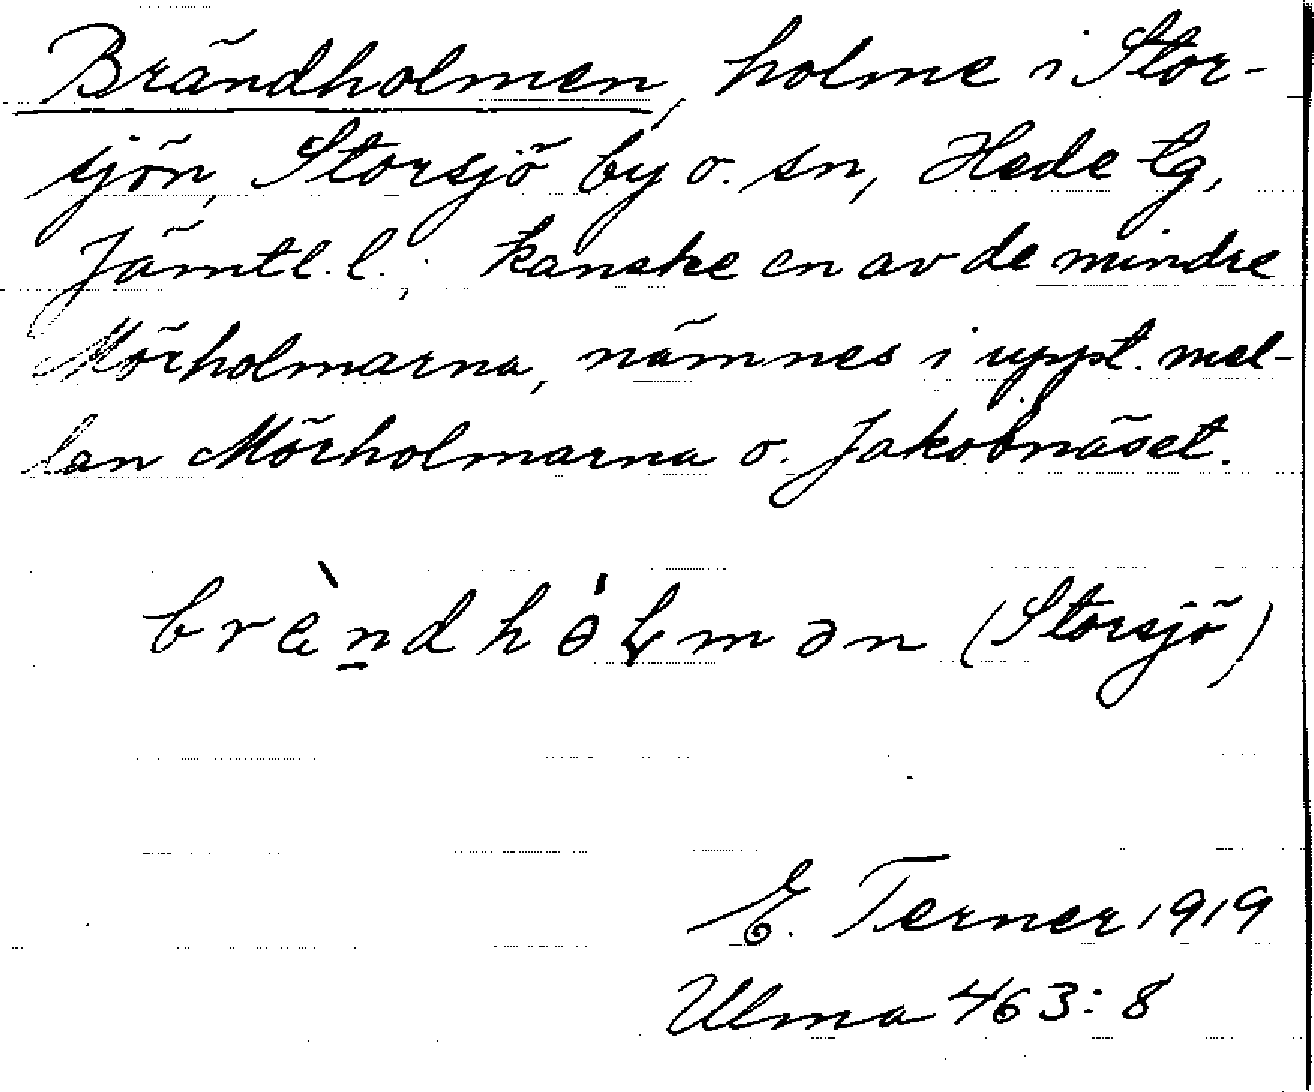 Brändholmen, holme i Stor-
sjön, Storsjö by o. sn, Hede tg,
Jämtl. l.; kanske en av de mindre
Mörholmarna, nämnes i uppt. mel-
lan Mörholmarna o. Jakobnäset.
brèndhólmən (Storsjö)
E. Terner 1919
Ulma 463:8